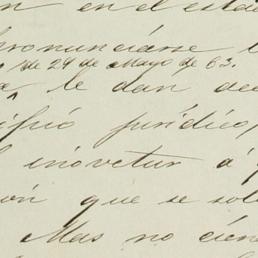 n en el estad
pronunciarse l
de 24 de Mayo de 63.
le dan de
ífico jurídico,
l inovetur á q
ón que se sol
Mas no cien